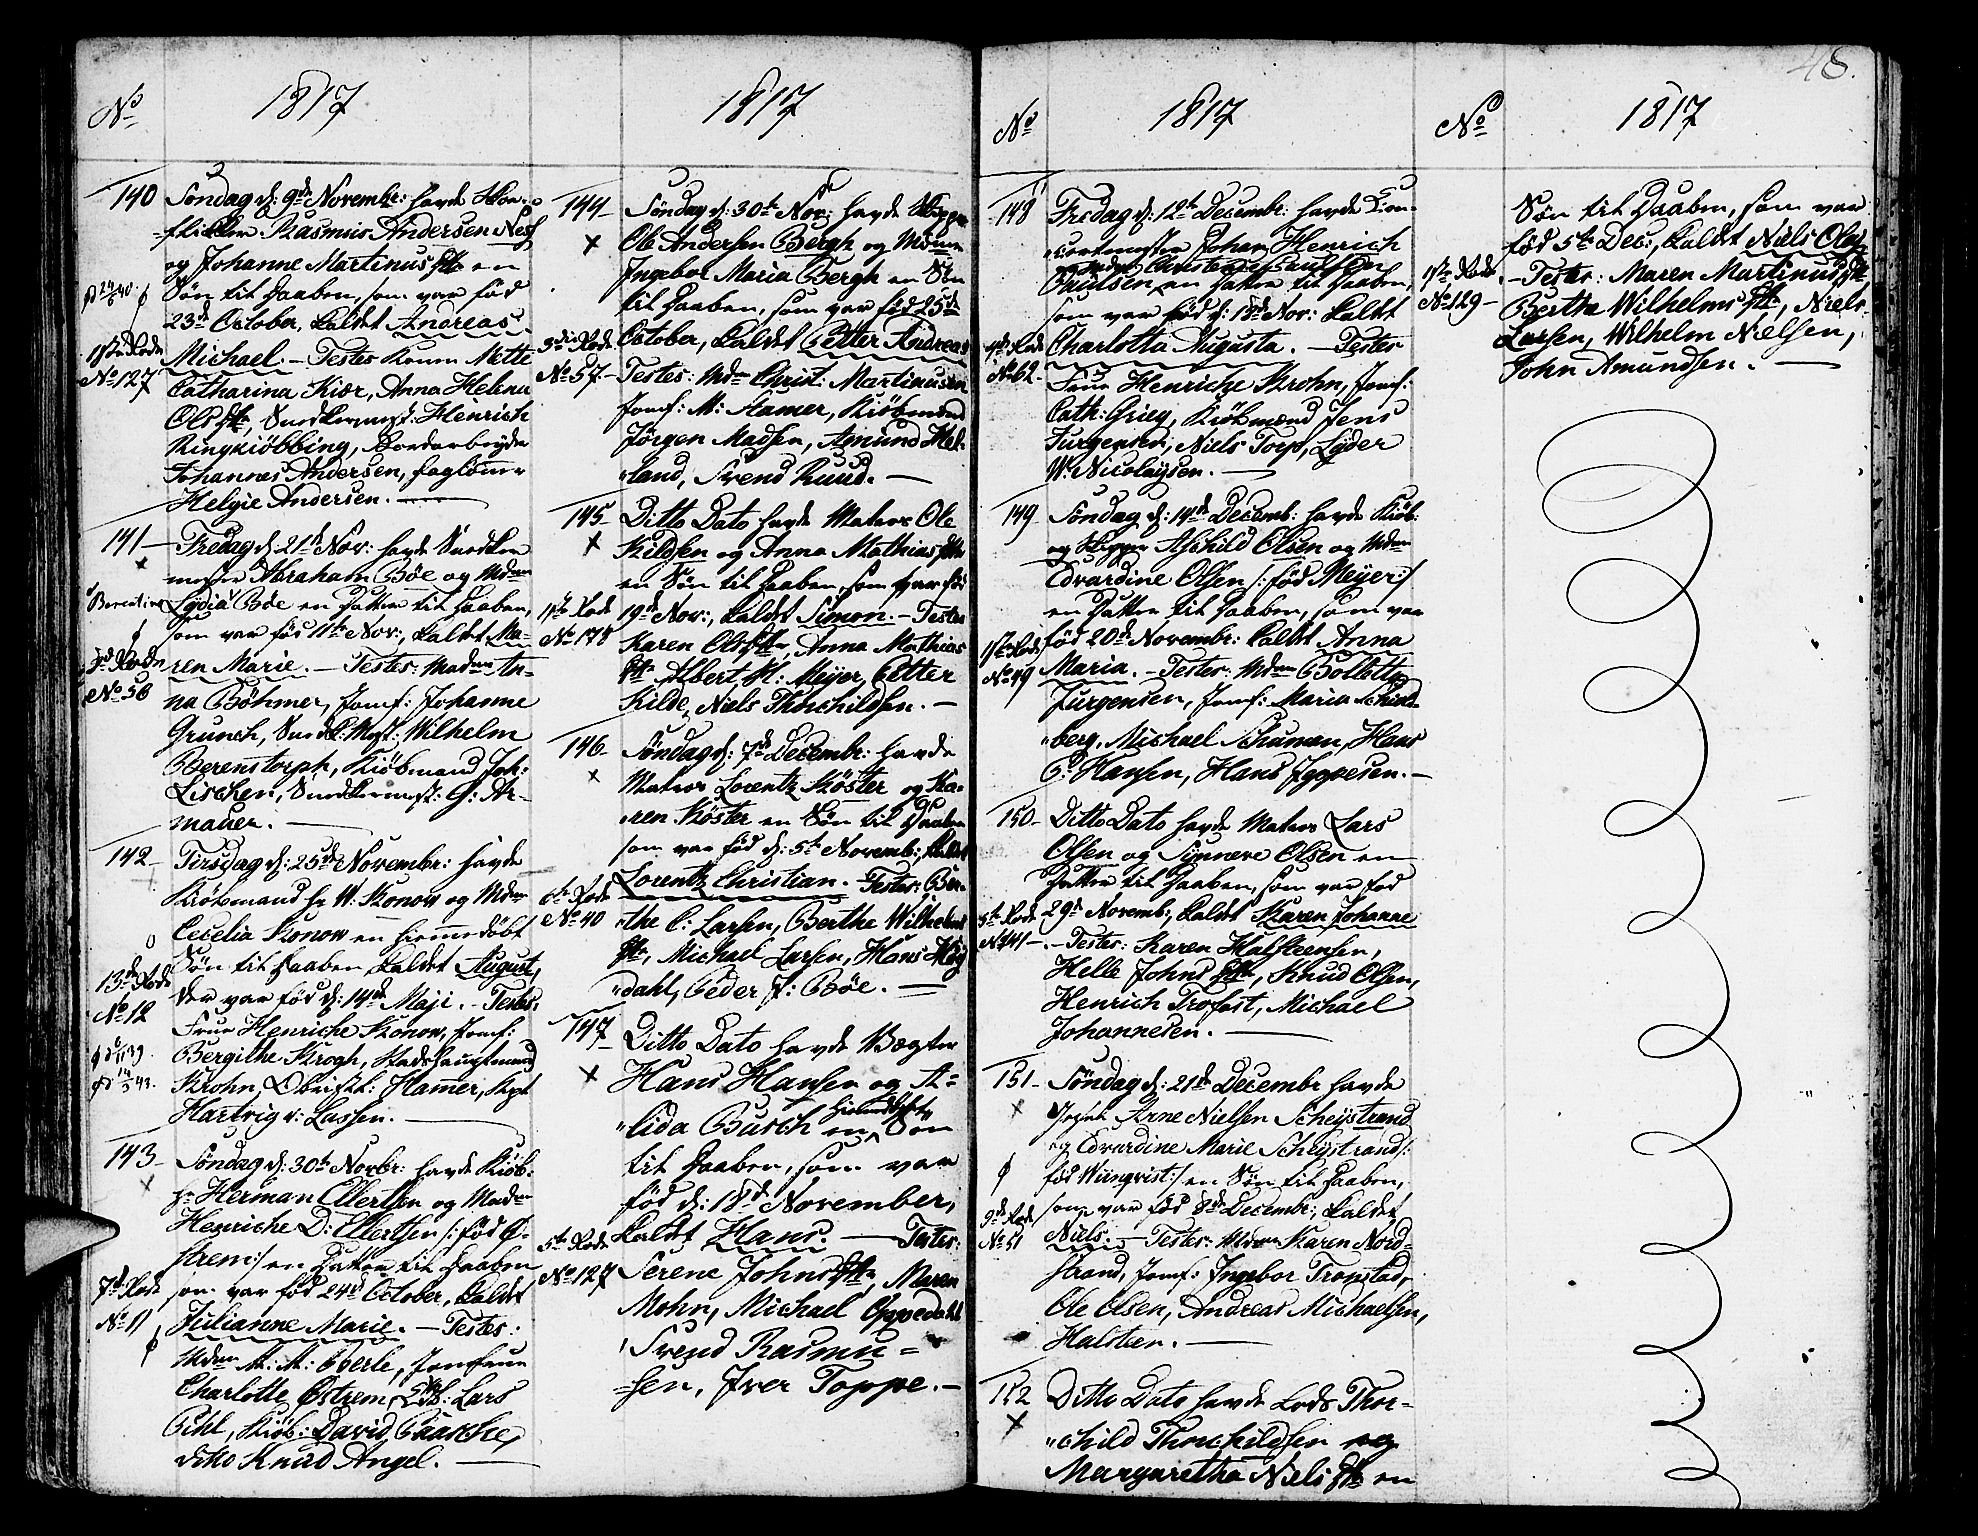 48.
No 1817
140 Søndag d: 9de Novembr: havde Skou-
-flikker Rasmus Andersen Nesf
og Johanne Martinus Dtr en
Søn til Daaben, som var fød
23de October, kaldet Andreas
1ste Rode Michael. - Testes Konen Mette
No 127 Catharina Kiær, Anna Helena
Ols Dtr, Snedkermest: Henrich
Ringkiöbbing, Bordarbeyder
Johannes Andersen, Daglönner
Helgie Andersen.
141 - Fredag d: 21de Nov: havde Snedker
mester Abraham Böe og Mdme
Berentine Lydia Böe en Datter til Daaben,
som var fød 11te Nov:, kaldet Ma-
3de Rode ren Marie. - Testes: Madme An-
No 56 na Böhmer, Jomf: Johanne
Grunch, Snedk: Mest: Wilhelm
Berenstorph, Kiöbmand Joh:
Lischen, Snedkermest: G: Ar-
mauer.
142 - Tirsdag d: 25de Novembr: havde
Kiöbmand Hr W: Konow og Mdme
Cecelia Konow en hiemmedöbt
Søn til Daaben kaldet August,
13de Rode der var fød d: 14de Maji. - Testes:
No 12 Frue Henriche Konow, Jomf:
Bergithe Krogh, Stads Hauptmand
Krohn, Obristl: Hamer, Kpt
Hartvig v: Lassen.
143 - Søndag d: 30te Novbr: havde Kiöb:
Hr Herman Ellertsen og Madme
Henriche D: Ellertsen /: fød Ø-
strem :/ en Datter til Daaben
7de Rode som var fød 24de October, kaldet
No 11 Julianne Marie. - Testes:
Mdme A: M: Eberle, Jomfrue
Charlotte Østrem, Lars
Pihl, Kiöb: David Paasche,
ditto Knud Angel.
1817
144 - Søndag d: 30te Nov: havde Skipper
Ole Andersen Bergh og Mdme
Ingebor Maria Bergh en Søn
til Daaben, som var fød 25de
3die Rode October, kaldet Petter Andreas
No 57 - Testes: Mdme Christ: Martinusen
Jomf: M: Hamer, Kiöbmænd
Jörgen Madsen, Amund Hel-
"land, Svend Ruud.
145 - Ditto Dato havde Matros Ole
Kildsen og Anna Mathias Dtr
en Søn til Daaben, som var fød
1ste Rode 19de Nov:, kaldet Simon. - Testes
No 178 Karen Ols Dtr, Anna Mathias
Dtr Albert H: Meyer, Petter
Kilde, Niels Thorchildsen. -
146 - Søndag d: 7de Decembr: havde
Matros Lorentz Köster og Ka-
"ren Köster en Søn til Daaben
som var fød d: 5te Novemb:, kaldet
6te Rode Lorentz Christian. - Testes: Ber-
No 40 "the C: Larsen, Berthe Wilhelms
Dtr, Michael Larsen, Hans Høy
"dahl, Peder J: Böe. -
147 - Ditto Dato havde Vægter
Hans Hansen og A-
"lida Busch en hiemdöbt Søn
til Daaben, som var
fød d: 18de November,
5te Rode kaldet Hans. - Testes:
No 127 Serene Johns Dtr, Maren
Mohn, Michael Oppedahl
Svend Rasmu-
-sen, Iver Toppe. -
No 1817
148 Fredag d: 12te Decembr: havde Con-
"certmester Johan Henrich
Paulsen en Datter til Daaben,
som var fød d: 18de Nov: kaldt
4de Rode Charlotta Augusta. - Testes
No 62 - Frue Henriche Krohn, Jomf:
Cath: Grieg, Kiöbmænd Jens
Jurgensen, Niels Torp, Lyder
W: Nicolaysen.
149 Søndag d: 14de Decemb: havde Kiöb:
og Skipper Aschild Olsen og Mdme
Edvardine Olsen /: fød Meyer :/
en Datter til Daaben, som var
1ste Rode fød 20de Novembr: kaldt Anna
No 49 Maria. - Testes: Mdme Bolletta
Jurgensen, Jomf: Maria Schind-
"berg, Michael Schuman, Hans
P: Hansen, Hans Jeppesen. -
150 - Ditto Dato havde Matros Lars
Olsen og Synneve Olsen en
Datter til Daaben, som var fød
5te Rode 29de Novemb:, kaldt Karen Johanne
No 141 - - Testes: Karen Halsteensen,
Helle Johns Dtr, Knud Olsen,
Henrich Trofast, Michael
Johannesen.
151 - Søndag d: 21de Decembr havde
Arne Nielsen Scheystrand
og Edvardine Marie Scheystrand /:
fød Wiinqvist :/ en Søn til Daaben,
9de Rode som var fød 8de Decembr:, kaldet
No 51 Niels. - Testes: Mdme Karen Nord-
strand, Jomf: Ingebor Tropstad,
Ole Olsen, Andreas Michaelsen,
Halsteen.
152 Ditto Dato havde Lods Thor-
"child Thorchildsen og
Margaretha Niels Dtr en
No 1817
Søn til Daaben, som var
fød 5te Dec:, kaldet Niels Olai
1ste Rode - Testes: Maren Martinus Dtr
No 129 - Berthe Wilhelms Dtr, Niels
Larsen, Wilhelm Nielsen,
John Amundsen. -